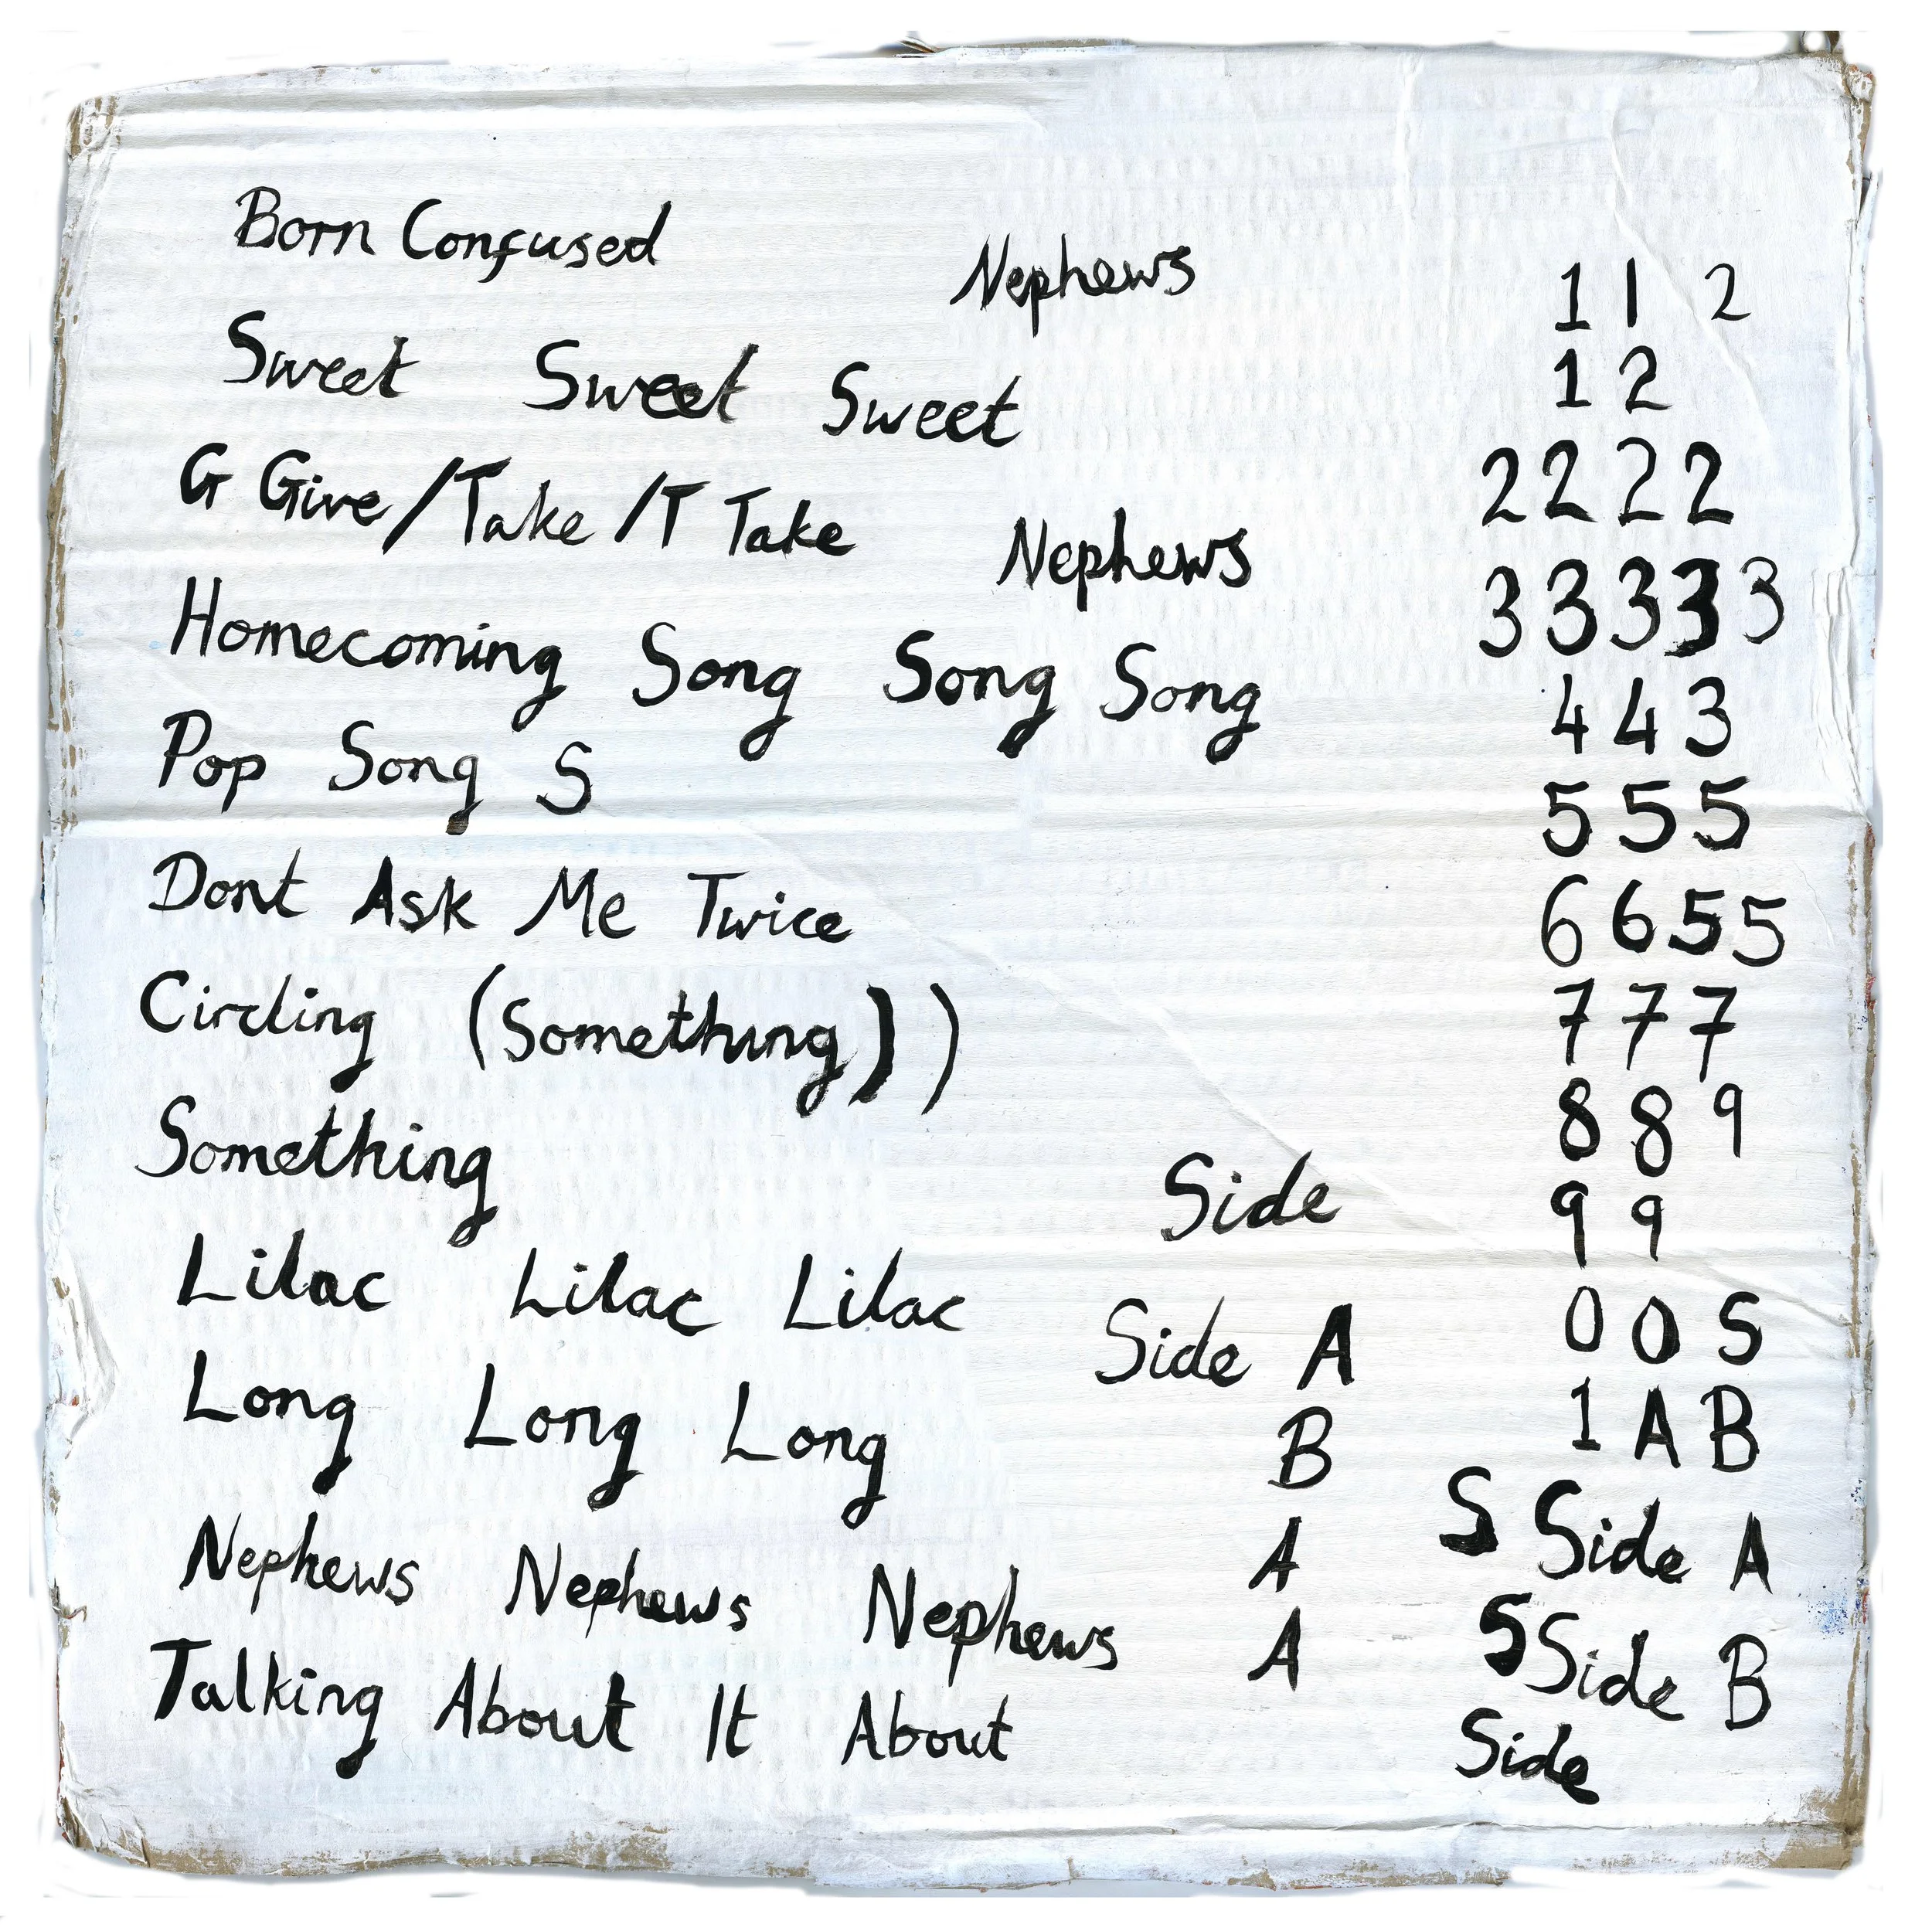 Born Confused
Nephews
1 1 2
Sweet Sweet Sweet
1 2
G Give/Take/T Take
2 2 2 2
Nephews
3 3 3 3 3
Homecoming Song Song Song
4 4 3
Pop Song S
5 5 5
Dont Ask Me Twice
6 6 5 5
Circling (Something))
7 7 7
Something
8 8 9
Side
9 9
Lilac Lilac Lilac
Side A
0 0 S
Long Long Long
B
1 A B
Nephews Nephews Nephews
A
S Side A
Talking About It About
A
S Side B
Side